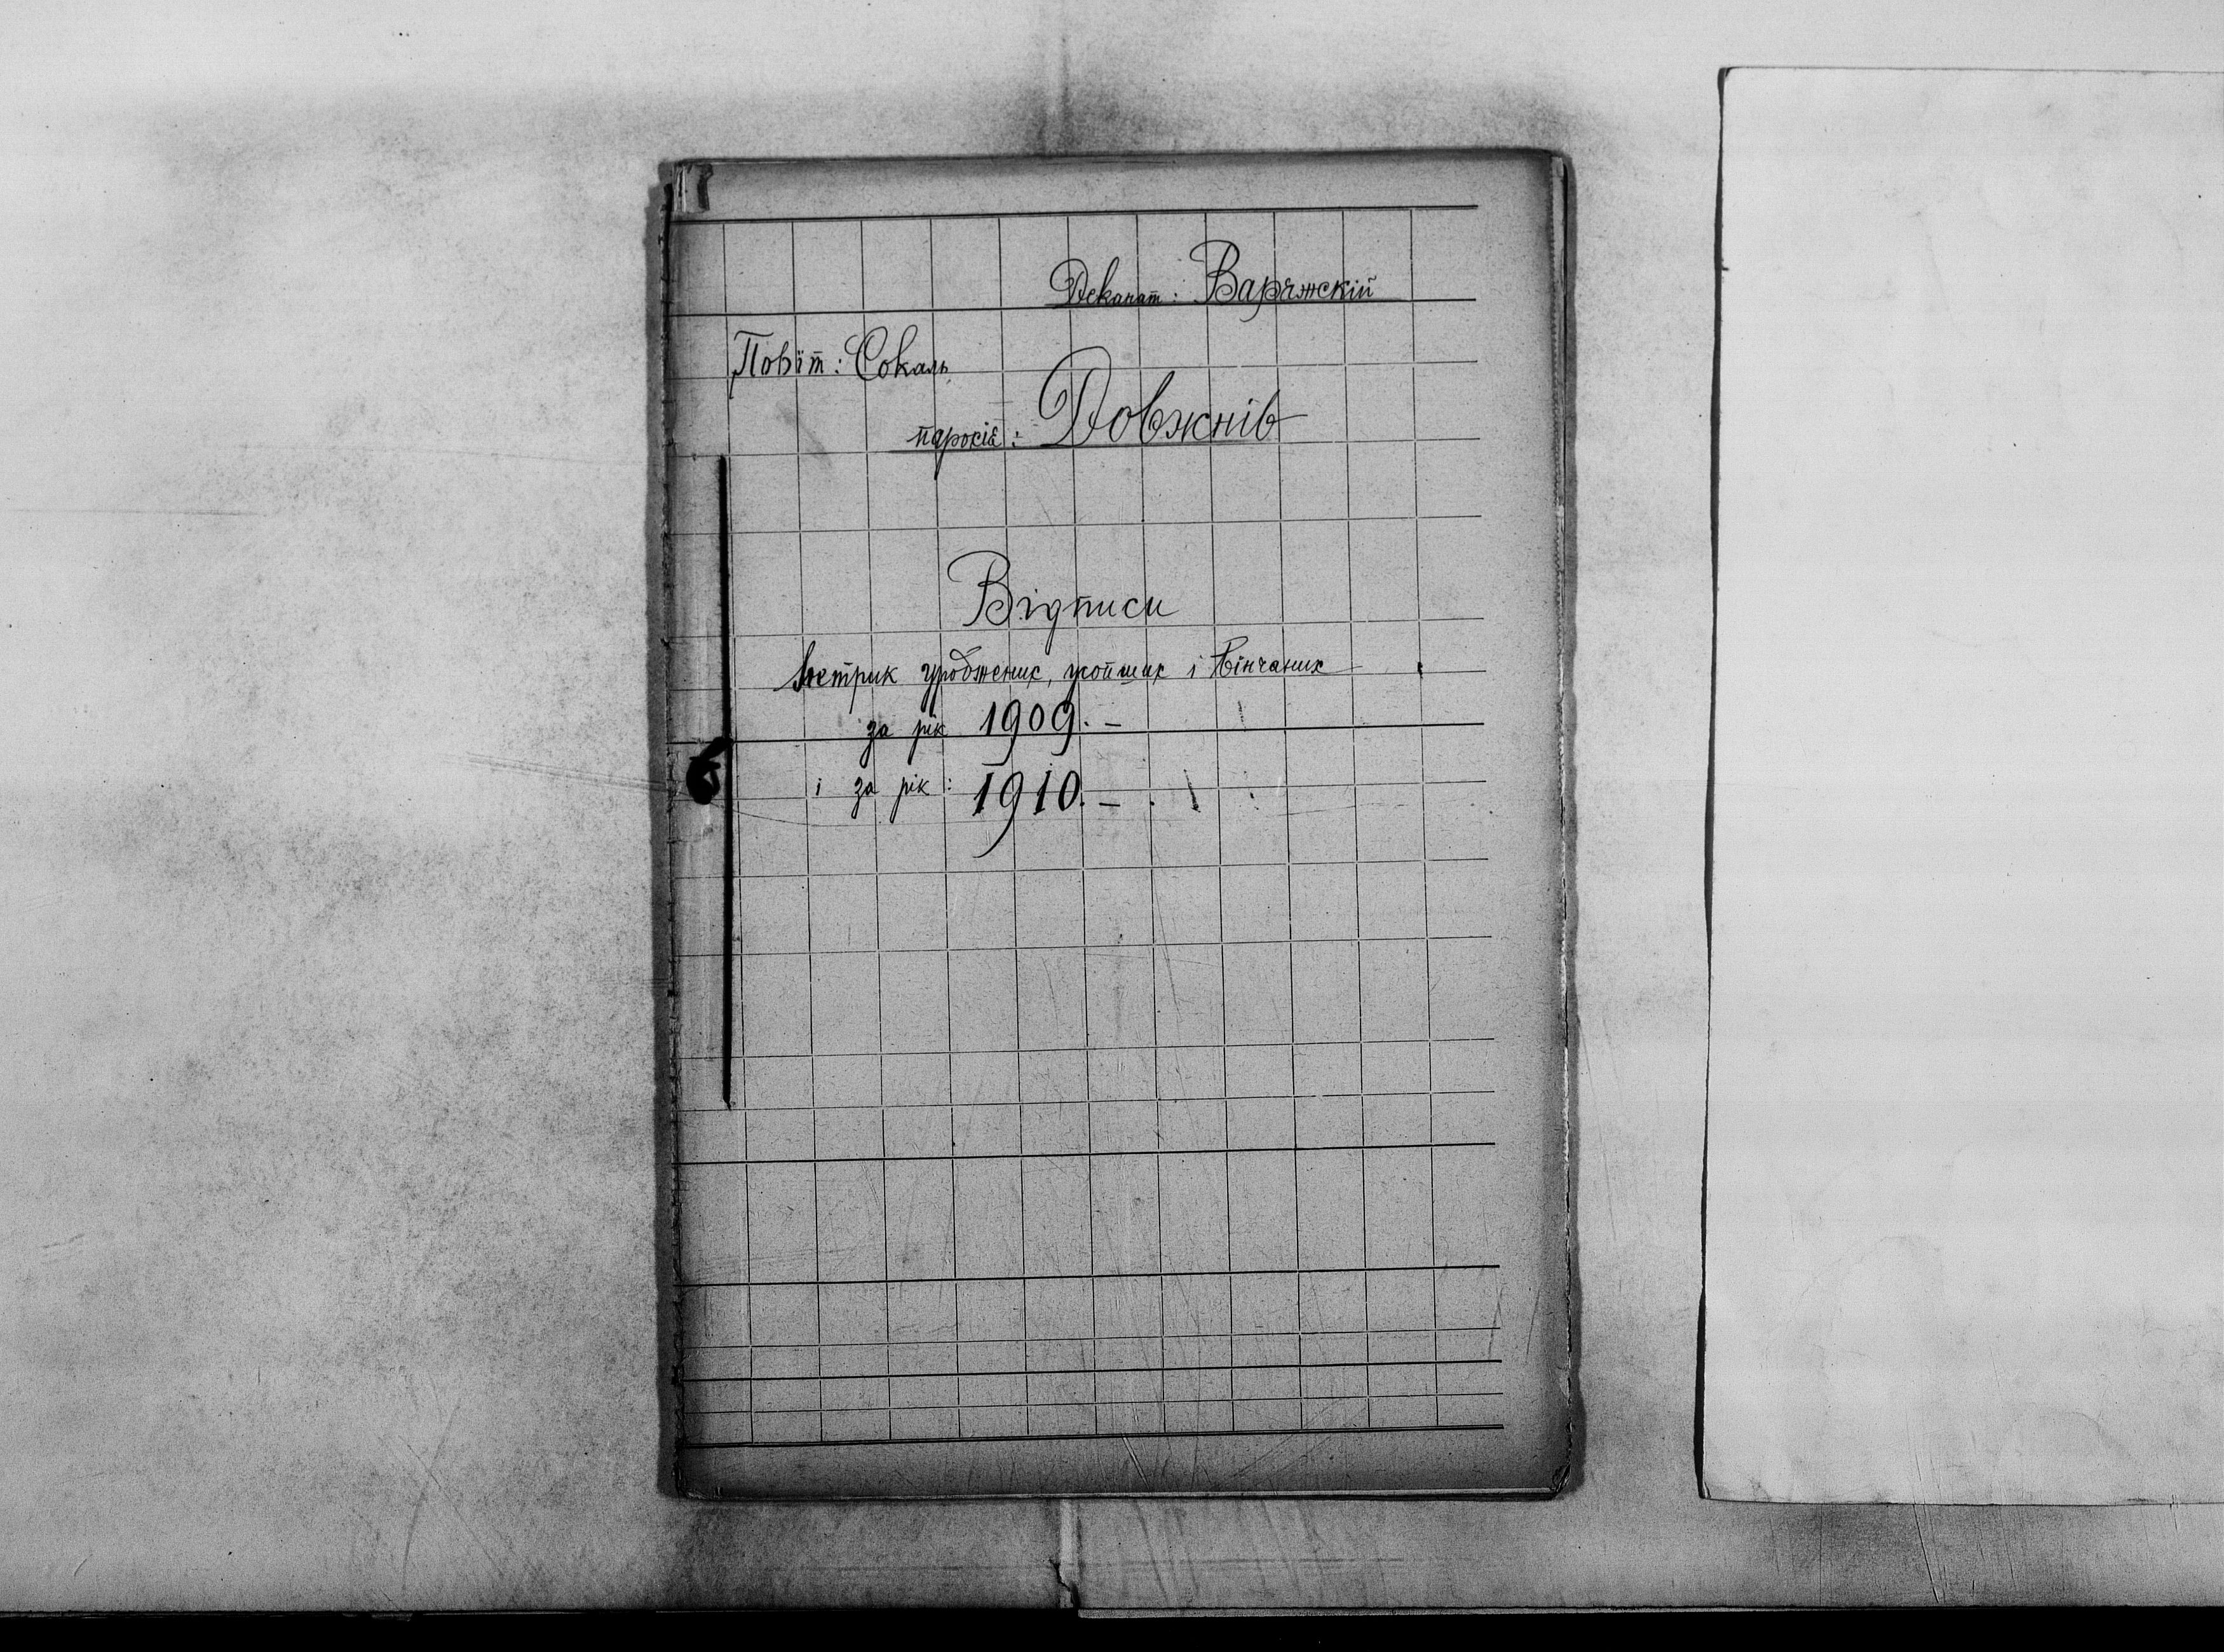 Деканат: Варяжскій
Повіт: Сокаль
парохія: Довжнів
Відписи
метрик уроджених, умерших і вінчаних
за рік 1909. –
і за рік: 1910. –